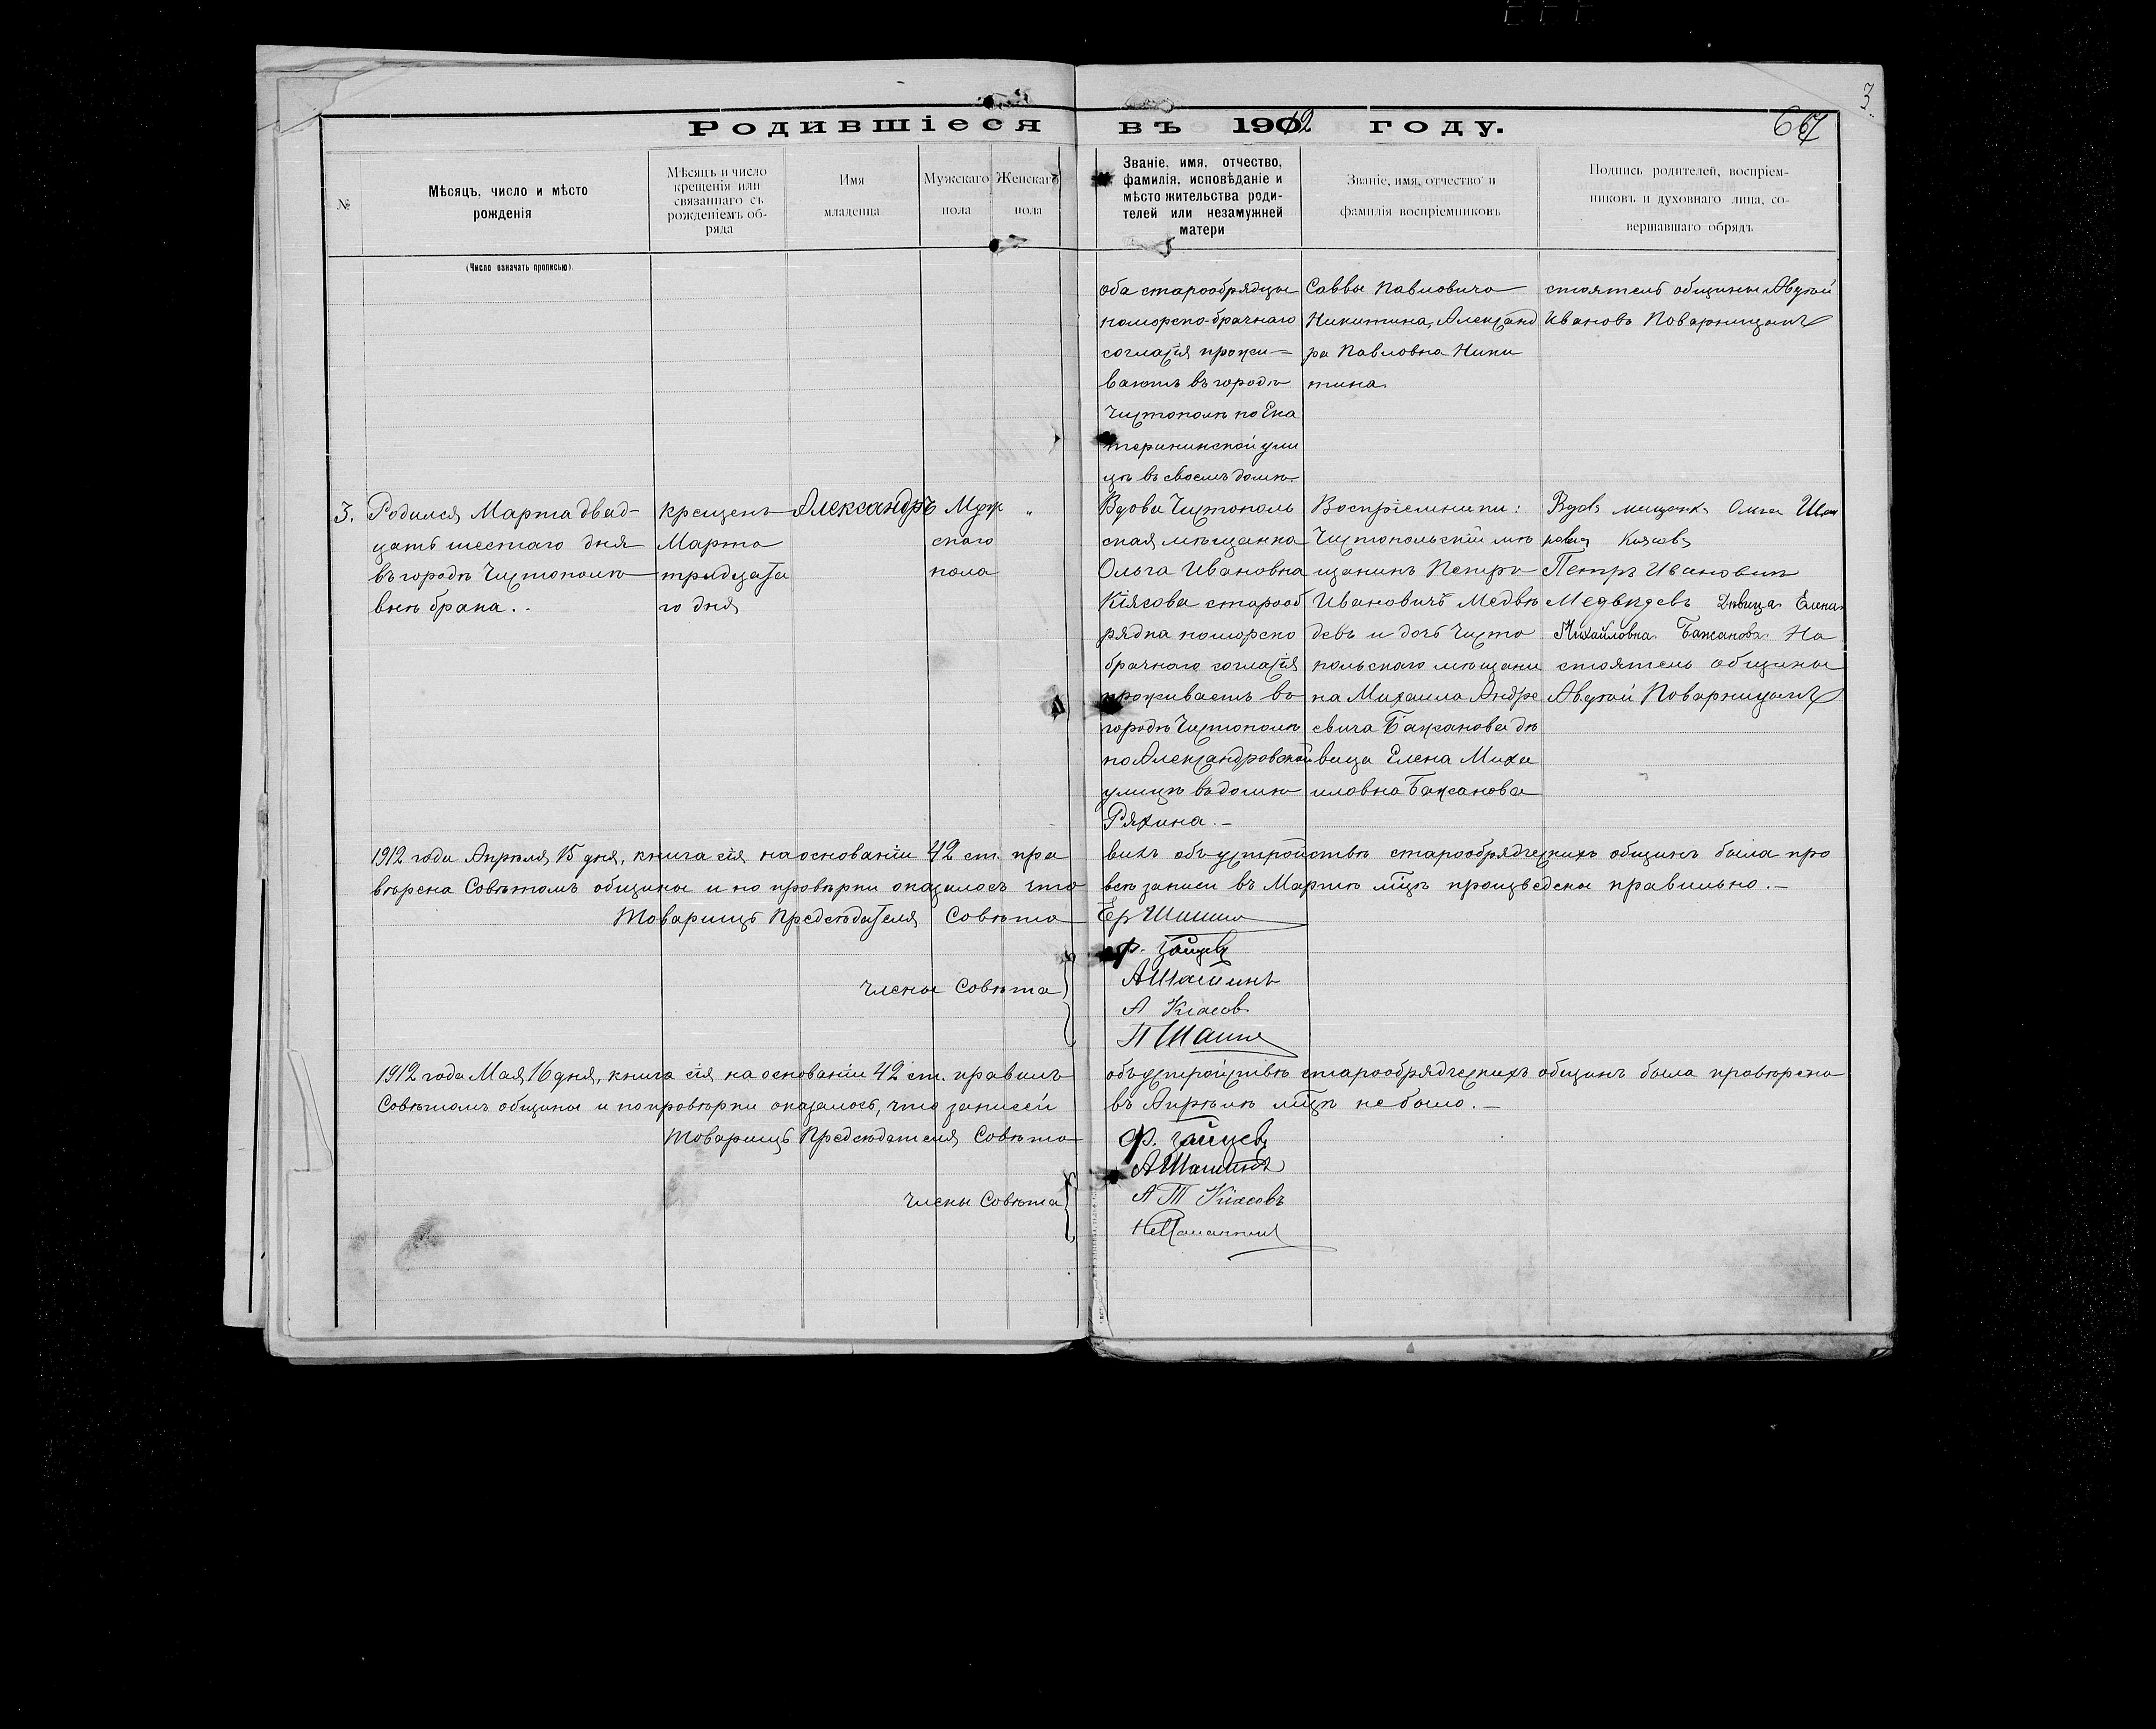 3
Родившіеся въ 1912 году.
67
№
Мѣсяцъ, число и мѣсто
рожденія
Мѣсяцъ и число
крещенія или
связаннаго съ
рожденіемъ об-
ряда
Имя
младенца
Мужскаго
пола
Женскаго
пола
Званіе, имя, отчество,
фамилія, исповѣданіе и
мѣсто жительства роди-
телей или незамужней
матери
Званіе, имя, отчество и
фамилія воспріемниковъ
Подпись родителей, воспріем-
никовъ и духовнаго лица, со-
вершавшаго обрядъ
(Число означать прописью).
оба старообрядцы
поморско-брачнаго
согласія прожи-
ваютъ въ городѣ
Чистополѣ по Ека
терининской ули
цѣ въ своемъ домѣ
Саввы Павловича
Никитина, Александ
ра Павловна Ники
тина
стоятель общины Авдей
Ивановъ Поварницынъ
3.
Родился Марта двад-
цать шестаго дня
въ городѣ Чистополѣ
внѣ брака.
Крещенъ
Марта
тридцата
го дня
Александръ
Муж
скаго
пола
"
Вдова Чистополь
ская мѣщанка
Ольга Ивановна
Кіясова старооб
рядка поморско
брачнаго согласія
проживаетъ въ
городѣ Чистополѣ
по Александровской
улицѣ въ домѣ
Ряхина.-
Воспріемники:
Чистопольскій мѣ
щанинъ Петръ
Ивановичъ Медвѣ
девъ и дочь Чисто
польскаго мѣщани
на Михаила Андре
евича Бажанова дѣ
вица Елена Миха
иловна Бажанова
Вдова мищанка Ольга
Кіясова
Петръ Ивановичъ
Медвѣдевъ Дѣвица Елена
Михайловна Бажанова На
стоятель общины
Авдей Поварницынъ
1912 года Апрѣля 15 дня, книга сія на основаніи 42 ст. пра вилъ объ устройствѣ старообрядческихъ общинъ была про
вѣрена Совѣтомъ общины и по провѣрки оказалось что всѣ записи въ Мартѣ мцѣ произведены правильно.-
Товарищъ Предсѣдателя Совѣта
Ер Шашин
Ф. Зайцевъ
Члены Совѣта
АШашинъ
А Кіасов
П Шашин
1912 года Мая 16 дня, книга сія на основаніи 42 ст. правилъ объ устройствѣ старообрядческихъ общинъ была провѣрена
Совѣтомъ общины и по провѣрки оказалось, что записей въ Апрѣлѣ мцѣ не было.-
Товарищъ Предсѣдателя Совѣта
Ф. Зайцевъ
АШашинъ
Члены Совѣта
А Т Кіасовъ